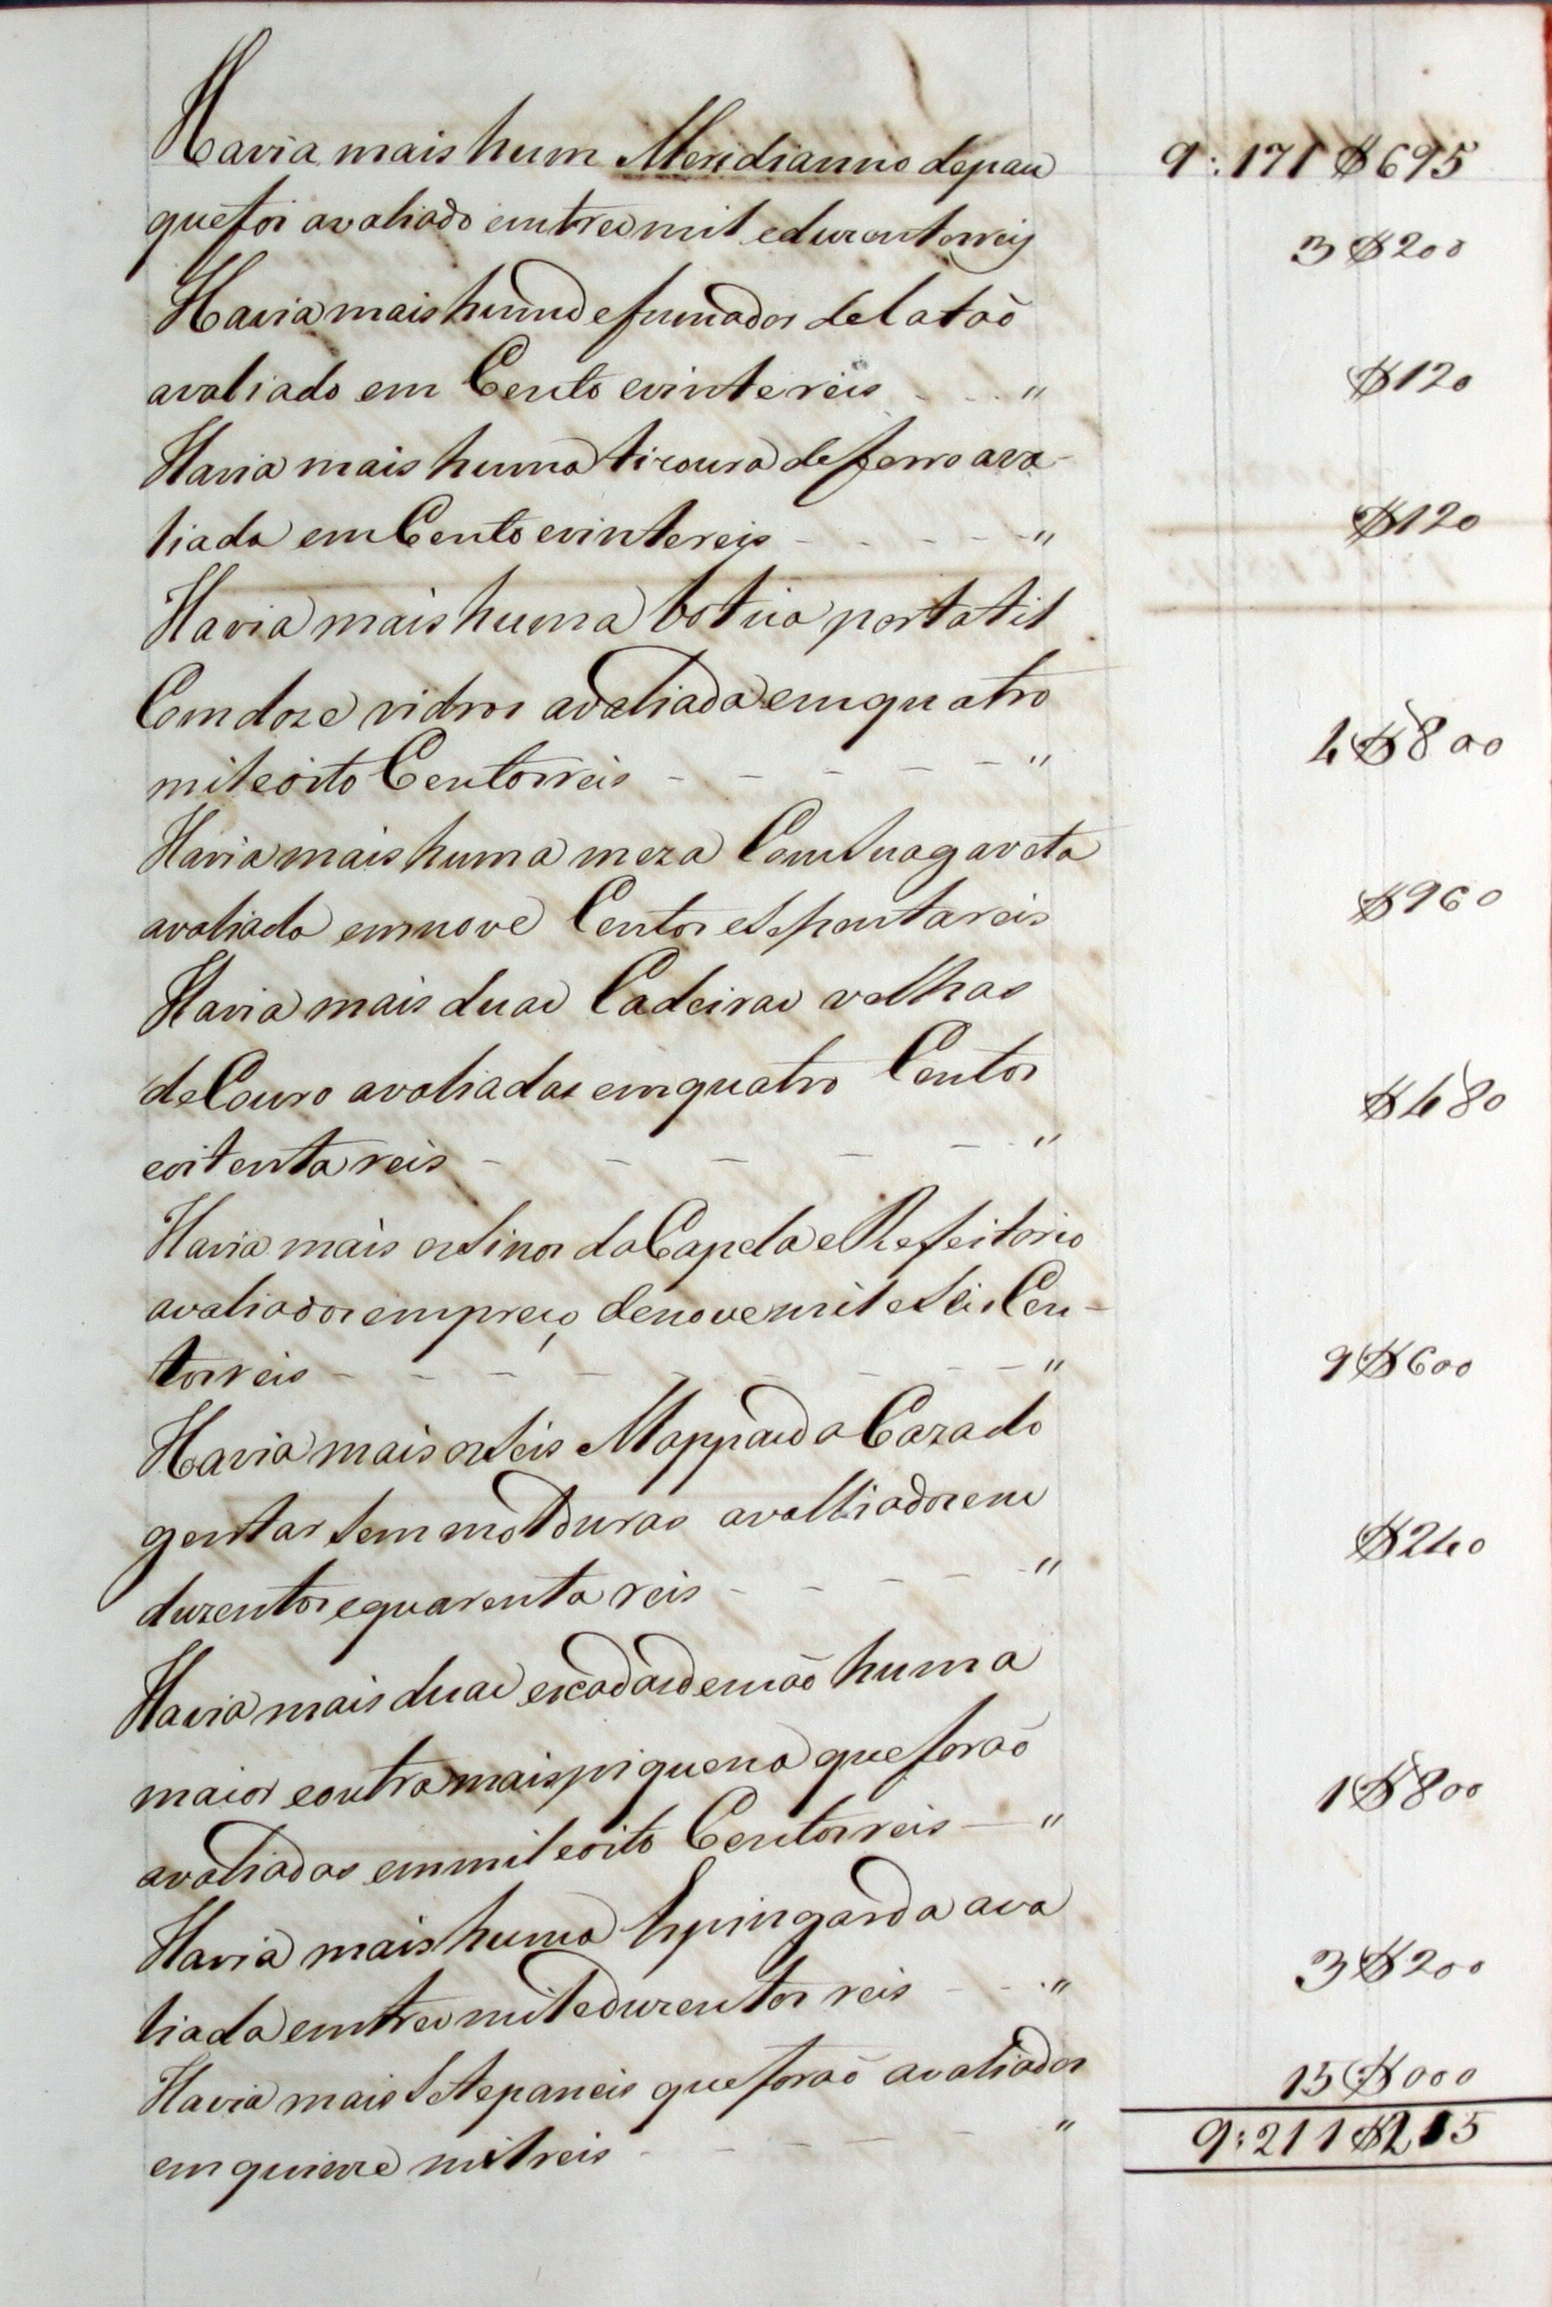 Havia mais hum Meridianno de pau 9:171$695
que foi avaliado em tres mil e duzentos reis 3$200
Havia mais hum defumador de latão
avaliado em Cento e vinte reis " $120
Havia mais huma tizoura de ferro ava-
liada em Cento e vinte reis " $120
Havia mais huma botica portatil
Com doze vidros avaliada em quatro
mil e oito Centos reis " 4$800
Havia mais huma meza Com sua gaveta
avaliada em nove Centos e sesenta reis $960
Havia mais duas Cadeiras velhas
de Couro avaliadas em quatro Centos
e oitenta reis " $480
Havia mais os sinos da Capela e Refeitorio
avaliados em preço de nove mil e seis Cen-
tos reis " 9$600
Havia mais os seis Mappas da Caza do
gentar sem molduras avalliados em
duzentos e quarenta reis " $240
Havia mais duas escadas de mão huma
maior e outra mais piquena que forão
avaliadas em mil e oito Centos reis " 1$800
Havia mais huma Espingarda ava
liada em tres mil e duzentos reis " 3$200
Havia mais sete paneis que forão avaliados 15$000
em quinze mil reis " 9:211$215